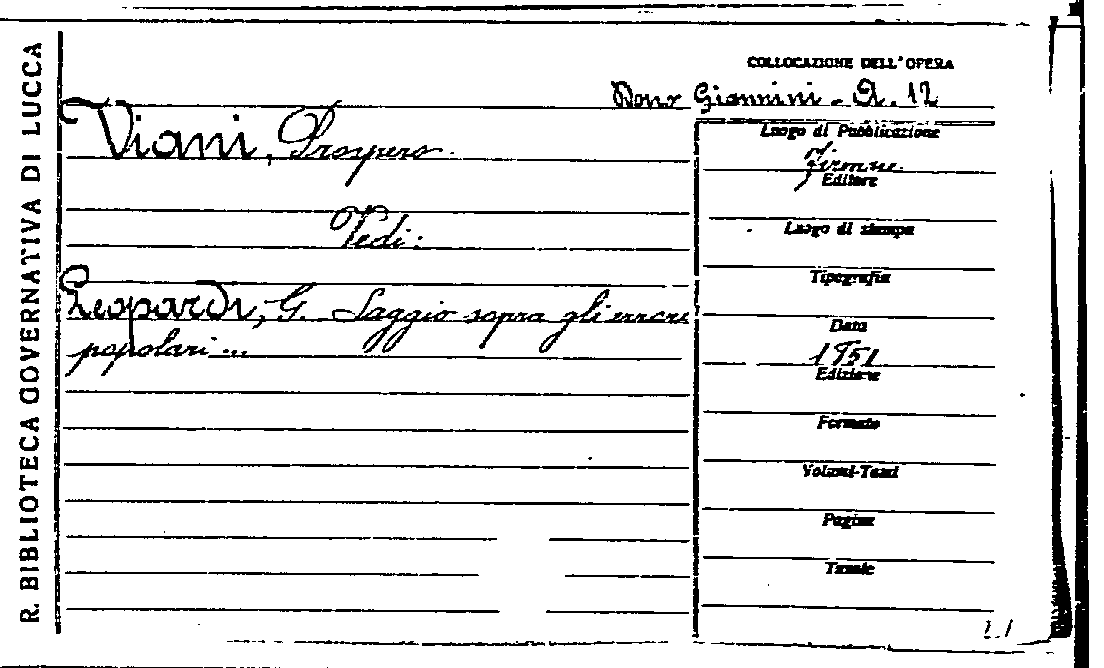 R. BIBLIOTECA GOVERNATIVA DI LUCCA
COLLOCAZIONE DELL'OPERA
Dono Giannini - A. 12
Viani, Prospero.
Vedi:
Leopardi, G. Saggio sopra gli errori
popolari...
Luogo di Pubblicazione
Firenze
Editore
Luogo di stampa
Tipografia
Data
1851
Edizione
Formato
Volumi-Tomi
Pagine
Tavole